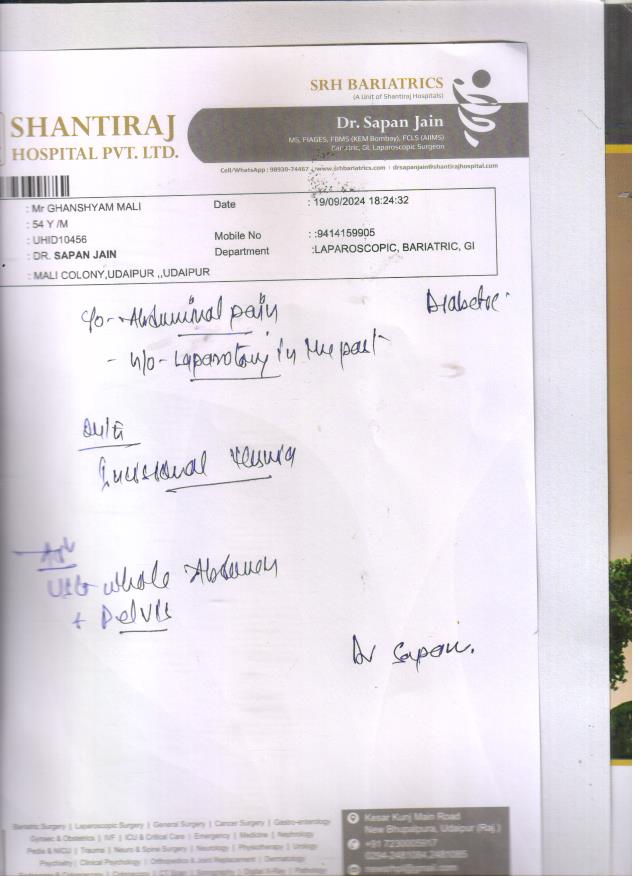 SRH BARIATRICS
(A Unit of Shantiraj Hospitals)
Dr. Sapan Jain
MS, FIAGES, FBMS (KEM Bombay), FCLS (AIIMS)
Bariatric, GI, Laparoscopic Surgeon
SHANTIRAJ
HOSPITAL PVT. LTD.
Cell/WhatsApp : 98930-74467 | www.srhbariatrics.com | drsapanjain@shantirajhospital.com
: Mr GHANSHYAM MALI
Date : 19/09/2024 18:24:32
: 54 Y /M
: UHID10456
Mobile No : :9414159905
: DR. SAPAN JAIN
Department :LAPAROSCOPIC, BARIATRIC, GI
: MALI COLONY,UDAIPUR ,,UDAIPUR
c/o - Abdominal pain
Diabetic
- h/o - Laparotomy in the past
Incisional Hernia
Adv
USG whole Abdomen
+ Pelvis
Dr Sapan.
Bariatric Surgery | Laparoscopic Surgery | General Surgery | Cancer Surgery | Gastro-enterology
Gynaec & Obstetrics | IVF | ICU & Critical Care | Emergency | Medicine | Nephrology
Pedia & NICU | Trauma | Neuro & Spine Surgery | Neurology | Physiotherapy | Urology
Psychiatry | Clinical Psychology | Orthopedics & Joint Replacement | Dermatology
Kesar Kunj Main Road
New Bhupalpura, Udaipur (Raj.)
+91 7230005917